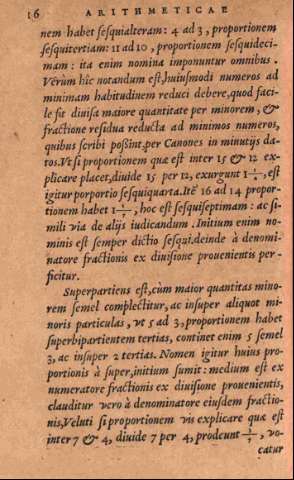 16 ARITHMETICAE
nem habet sesquialteram: 4 ad 3, proportionem
sesquitertiam: 11 ad 10, proportionem sesquideci-
mam: ita enim nomina imponuntur omnibus.
Verùm hic notandum est, huiusmodi numeros ad
minimam habitudinem reduci debere, quod faci-
le fit diuisa maiore quantitate per minorem, &
fractione residua reducta ad minimos numeros,
quibus scribi possint, per Canones in minutijs da-
tos. Vt si proportionem quæ est inter 15 & 12 ex-
plicare placet, diuide 15 per 12, exurgunt 1 1/4, est
igitur porportio sesquiquarta. Itē 16 ad 14 propor-
tionem habet 1 1/7, hoc est sesquiseptimam: ac si-
mili via de alijs iudicandum. Initium enim no-
minis est semper dictio sesqui, deinde à denomi-
natore fractionis ex diuisione prouenientis per-
ficitur.
Superpartiens est, cùm maior quantitas mino-
rem semel complectitur, ac insuper aliquot mi-
noris particulas, vt 5 ad 3, proportionem habet
superbipartientem tertias, continet enim 5 semel
3, ac insuper 2 tertias. Nomen igitur huius pro-
portionis à super, initium sumit: medium est ex
numeratore fractionis ex diuisione prouenientis,
clauditur verò à denominatore eiusdem fractio-
nis, Veluti si proportionem vis explicare quæ est
inter 7 & 4, diuide 7 per 4, prodeunt 1 3/4, vo-
catur